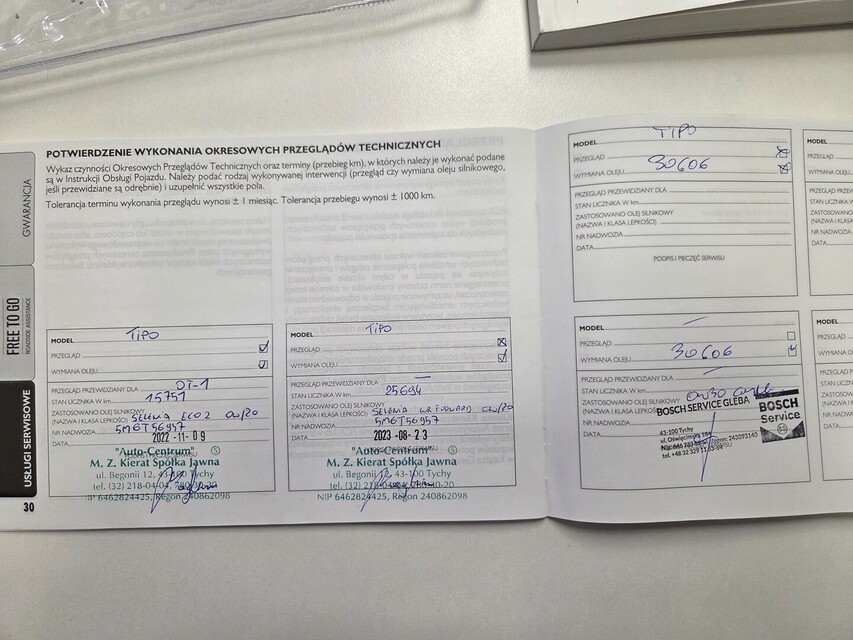 GWARANCJA
FREE TO GO
ROADSIDE ASSISTANCE
USŁUGI SERWISOWE
30
POTWIERDZENIE WYKONANIA OKRESOWYCH PRZEGLĄDÓW TECHNICZNYCH
Wykaz czynności Okresowych Przeglądów Technicznych oraz terminy (przebieg km), w których należy je wykonać podane
są w Instrukcji Obsługi Pojazdu. Należy podać rodzaj wykonywanej interwencji (przegląd czy wymiana oleju silnikowego,
jeśli przewidziane są odrębnie) i uzupełnić wszystkie pola.
Tolerancja terminu wykonania przeglądu wynosi ± 1 miesiąc. Tolerancja przebiegu wynosi ± 1000 km.
MODEL TIPO
PRZEGLĄD
WYMIANA OLEJU
PRZEGLĄD PRZEWIDZIANY DLA OT-1
STAN LICZNIKA W km 15751
ZASTOSOWANO OLEJ SILNIKOWY
(NAZWA I KLASA LEPKOŚCI) SELENIA ECO2 0W/20
NR NADWOZIA 5M6T56957
DATA 2022-11-09
"Auto-Centrum"
M. Z. Kierat Spółka Jawna
ul. Begonii 12, 43-100 Tychy
tel. (32) 218-04-04,
NIP 6462824425, Regon 240862098
MODEL TIPO
PRZEGLĄD
WYMIANA OLEJU
PRZEGLĄD PRZEWIDZIANY DLA
STAN LICZNIKA W km 25694
ZASTOSOWANO OLEJ SILNIKOWY
(NAZWA I KLASA LEPKOŚCI) SELENIA 0W/20
NR NADWOZIA 5M6T56957
DATA 2023-08-23
"Auto-Centrum"
M. Z. Kierat Spółka Jawna
ul. Begonii 12, 43-100 Tychy
tel. (32) 218-04-04,
NIP 6462824425, Regon 240862098
MODEL TIPO
PRZEGLĄD 30606
WYMIANA OLEJU
PRZEGLĄD PRZEWIDZIANY DLA
STAN LICZNIKA W km
ZASTOSOWANO OLEJ SILNIKOWY
(NAZWA I KLASA LEPKOŚCI)
NR NADWOZIA
DATA
PODPIS I PIECZĘĆ SERWISU
MODEL
PRZEGLĄD
WYMIANA OLEJU 30606
PRZEGLĄD PRZEWIDZIANY DLA
STAN LICZNIKA W km
ZASTOSOWANO OLEJ SILNIKOWY 0W30
(NAZWA I KLASA LEPKOŚCI)
NR NADWOZIA
DATA
BOSCH SERVICE GLEBA
43-100 Tychy
BOSCH
Service
MODEL
PRZEGLĄD
WYMIANA OLEJU
STAN LICZNIKA
NR NADWOZIA
DATA
MODEL
PRZEGLĄD
WYMIANA
STAN LICZN
NR NADWO
DATA